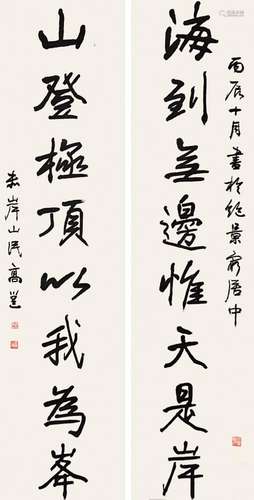 丙辰十月書於絕景窮居中
海到無邊惟天是岸
山登極頂以我為峯
赤岸山民高邕